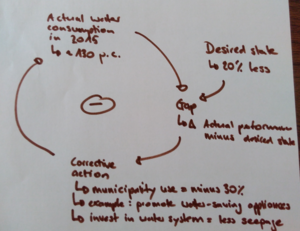 Actual water
consumption
in 2015
↳ ≈ 130 p.c.
Desired state
↳ 20% less
Gap
↳ Δ Actual performance
minus desired state
Corrective
action
↳ municipality use = minus 30%
↳ example: promote water-saving appliances
↳ invest in water system = less seepage